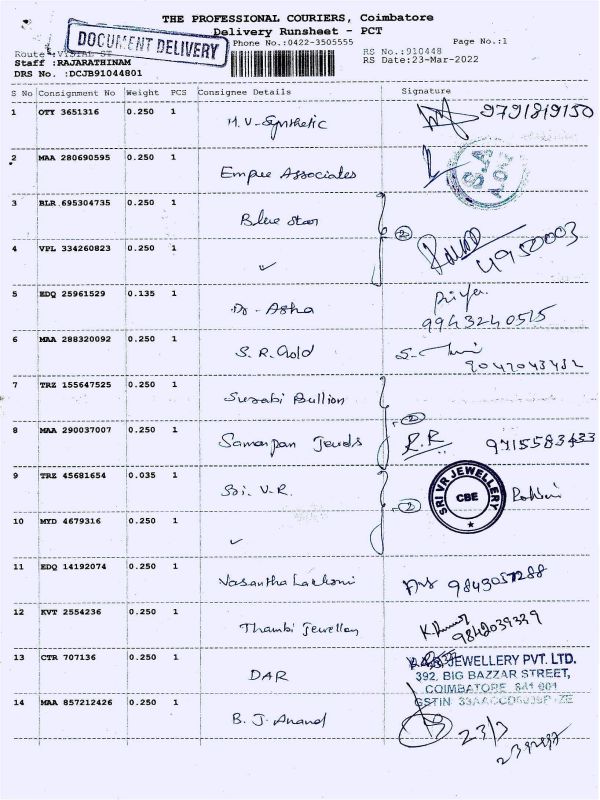 THE PROFESSIONAL COURIERS, Coimbatore
Delivery Runsheet - PCT
DOCUMENT DELIVERY
Phone No.:0422-3505555 Page No.:1
Route
Staff :RAJARATHINAM
DRS No. :DCJB91044801
RS No.:910448
RS Date:23-Mar-2022
S No Consignment No Weight PCS Consignee Details Signature
1 OTY 3651316 0.250 1 M.V-Synthetic 9791819150
2 MAA 280690595 0.250 1 Empee Associates
3 BLR 695304735 0.250 1 Blue Star
4 VPL 334260823 0.250 1 ✓ 2 4950003
5 EDQ 25961529 0.135 1 Dr. Asha Priya
9943240515
6 MAA 288320092 0.250 1 S.R.Gold
7 TRZ 155647525 0.250 1 Surabi Bullion
8 MAA 290037007 0.250 1 Samarpan Jewels 2 R.R 9715583433
9 TRZ 45681654 0.035 1 Sri. V.R. 2 SRI VR JEWELLERY CBE Rohini
10 MYD 4679316 0.250 1 ✓
11 EDQ 14192074 0.250 1 Vasantha Lakshmi 9843057288
12 KVT 2554236 0.250 1 Thambi Jewellery K.Kumar
9842039339
13 CTR 707136 0.250 1 DAR
JEWELLERY PVT. LTD.
392, BIG BAZZAR STREET,
COIMBATORE 641 001
GSTIN
14 MAA 857212426 0.250 1 B.J.Anand 23/3